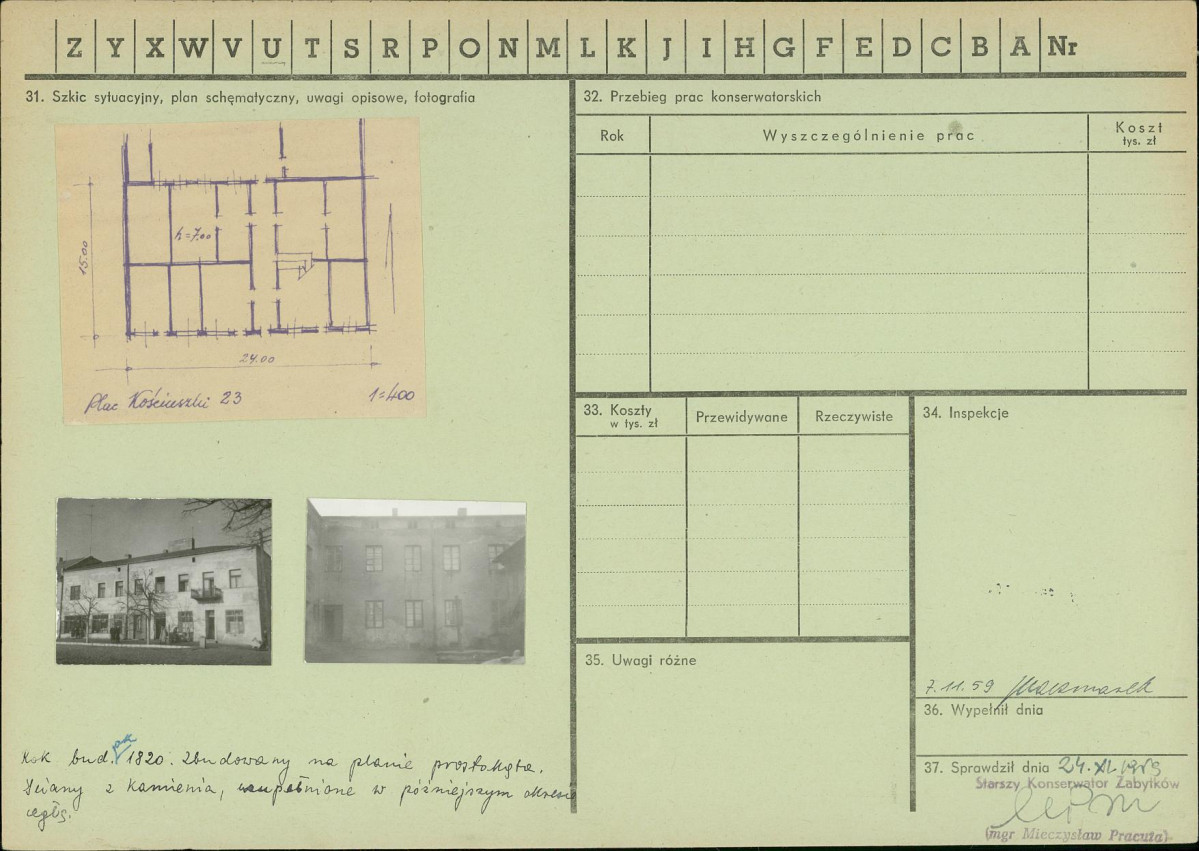 Z Y X W V U T S R P O N M L K J I H G F E D C B A Nr
31. Szkic sytuacyjny, plan schematyczny, uwagi opisowe, fotografia
h=7.00
15.00
24.00
Plac Kościuszki 23 1:400
Rok bud. po 1820. Zbudowany na planie prostokąta.
Ściany z kamienia, uzupełnione w późniejszym okresie
cegłą.
32. Przebieg prac konserwatorskich
Rok Wyszczególnienie prac Koszt
tys. zł
33. Koszty Przewidywane Rzeczywiste
w tys. zł
34. Inspekcje
35. Uwagi różne
7.11.59
36. Wypełnił dnia
37. Sprawdził dnia 24.XI.1959
Starszy Konserwator Zabytków
(mgr Mieczysław Pracuta)